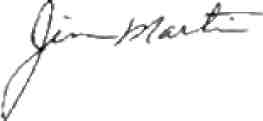 Jim Martin